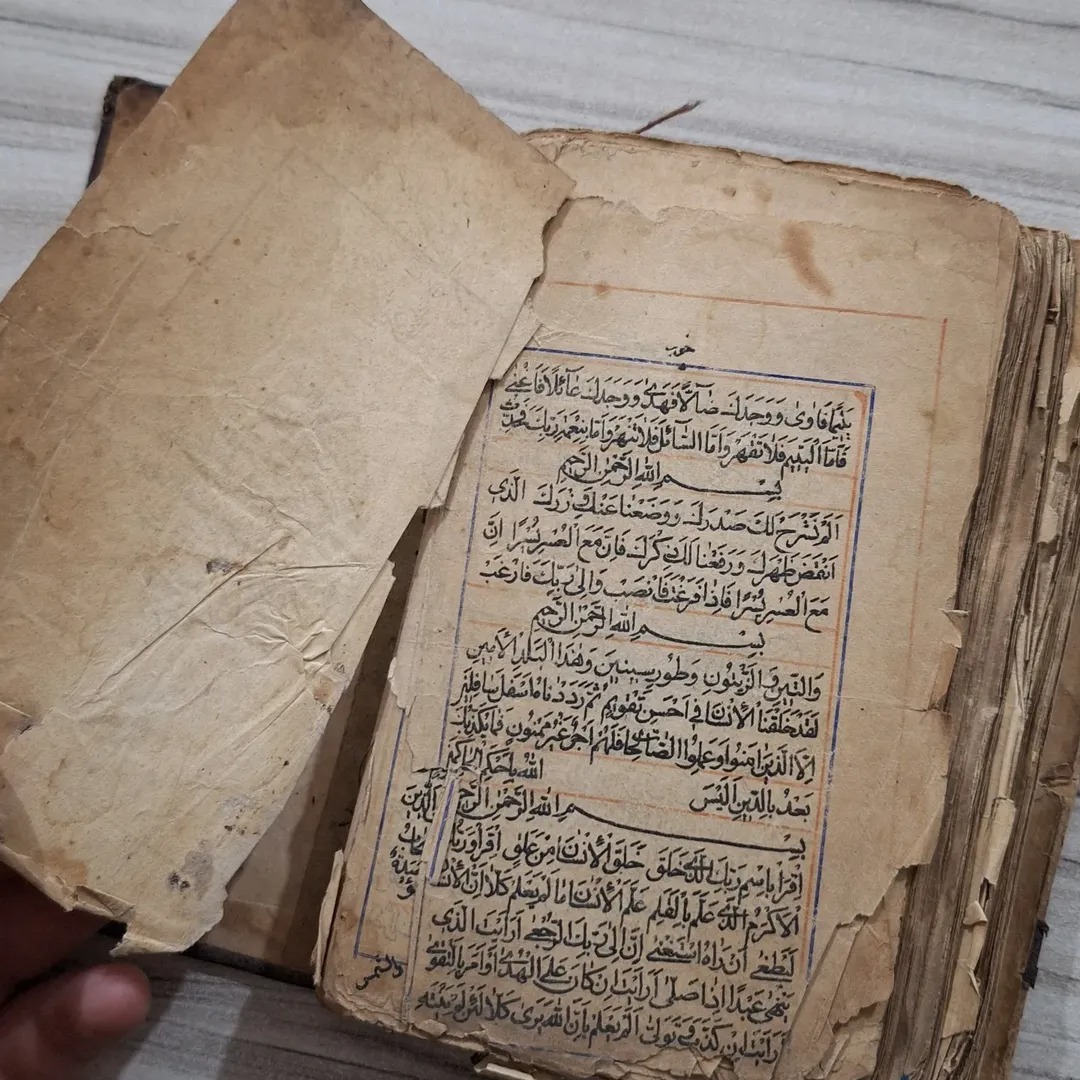 خوب
يَتِيْمًا فَاٰوٰى وَوَجَدَكَ ضَآلًّا فَهَدٰى وَوَجَدَكَ عَآئِلًا فَاَغْنٰى
فَاَمَّا الْيَتِيْمَ فَلَا تَقْهَرْ وَاَمَّا السَّآئِلَ فَلَا تَنْهَرْ وَاَمَّا بِنِعْمَةِ رَبِّكَ فَحَدِّثْ
بِسْمِ اللهِ الرَّحْمٰنِ الرَّحِيْمِ
اَلَمْ نَشْرَحْ لَكَ صَدْرَكَ وَوَضَعْنَا عَنْكَ وِزْرَكَ الَّذِي
اَنْقَضَ ظَهْرَكَ وَرَفَعْنَا لَكَ ذِكْرَكَ فَاِنَّ مَعَ الْعُسْرِ يُسْرًا اِنَّ
مَعَ الْعُسْرِ يُسْرًا فَاِذَا فَرَغْتَ فَانْصَبْ وَاِلٰى رَبِّكَ فَارْغَبْ
بِسْمِ اللهِ الرَّحْمٰنِ الرَّحِيْمِ
وَالتِّيْنِ وَالزَّيْتُوْنِ وَطُوْرِ سِيْنِيْنَ وَهٰذَا الْبَلَدِ الْاَمِيْنِ
لَقَدْ خَلَقْنَا الْاِنْسَانَ فِيْ اَحْسَنِ تَقْوِيْمٍ ثُمَّ رَدَدْنَاهُ اَسْفَلَ سَافِلِيْنَ
اِلَّا الَّذِيْنَ اٰمَنُوْا وَعَمِلُوا الصَّالِحَاتِ فَلَهُمْ اَجْرٌ غَيْرُ مَمْنُوْنٍ فَمَا يُكَذِّبُكَ
بَعْدُ بِالدِّيْنِ اَلَيْسَ اللهُ بِاَحْكَمِ الْحَاكِمِيْنَ
بِسْمِ اللهِ الرَّحْمٰنِ الرَّحِيْمِ
اِقْرَأْ بِاسْمِ رَبِّكَ الَّذِيْ خَلَقَ خَلَقَ الْاِنْسَانَ مِنْ عَلَقٍ اِقْرَأْ وَرَبُّكَ
الْاَكْرَمُ الَّذِيْ عَلَّمَ بِالْقَلَمِ عَلَّمَ الْاِنْسَانَ مَا لَمْ يَعْلَمْ كَلَّا اِنَّ الْاِنْسَانَ
لَيَطْغٰى اَنْ رَاٰهُ اسْتَغْنٰى اِنَّ اِلٰى رَبِّكَ الرُّجْعٰى اَرَاَيْتَ الَّذِيْ
يَنْهٰى عَبْدًا اِذَا صَلّٰى اَرَاَيْتَ اِنْ كَانَ عَلَى الْهُدٰى اَوْ اَمَرَ بِالتَّقْوٰى
اَرَاَيْتَ اِنْ كَذَّبَ وَتَوَلّٰى اَلَمْ يَعْلَمْ بِاَنَّ اللهَ يَرٰى كَلَّا لَئِنْ لَمْ يَنْتَهِ
الَّذِيْنَ